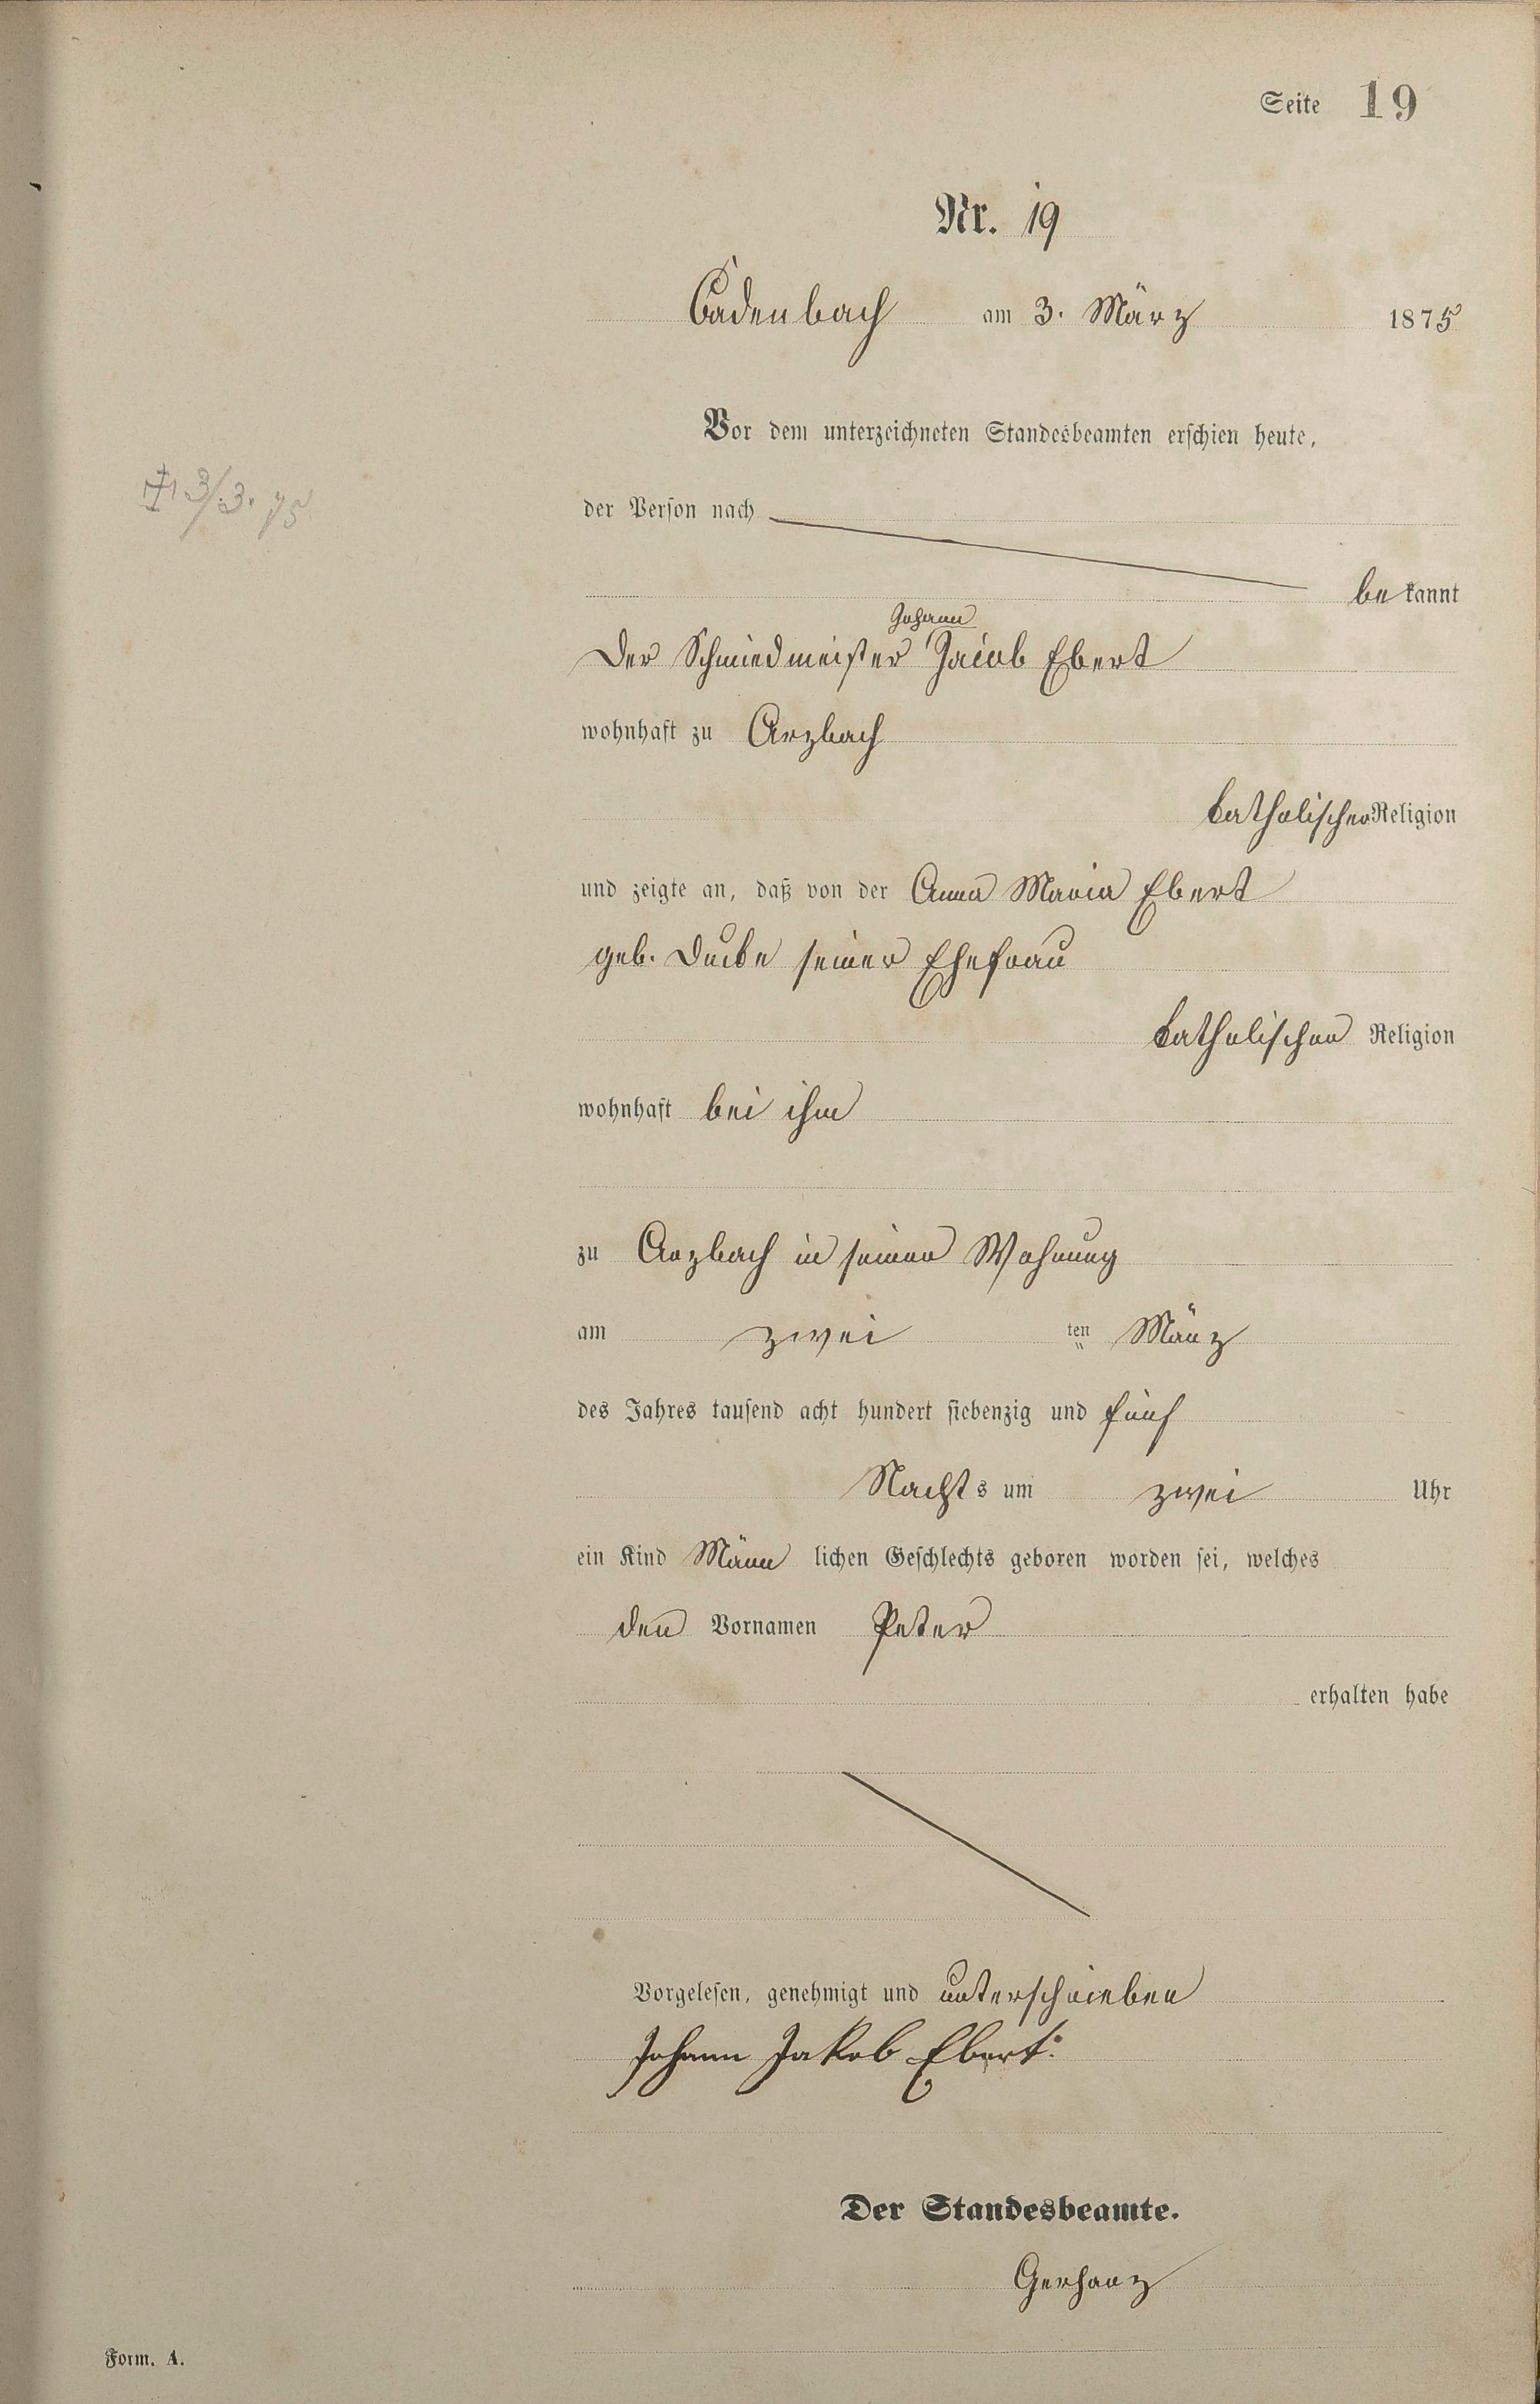 Seite 19
Nr. 19
Cadenbach am 3. März 1875
Vor dem unterzeichneten Standesbeamten erschien heute,
† 3/3. 75
der Person nach
bekannt
Johann
Der Schmiedmeister Jacob Ebert
wohnhaft zu Arzbach
katholischer Religion
und zeigte an, daß von der Anna Maria Ebert
geb. seiner Ehefrau
katholischer Religion
wohnhaft bei ihm
zu Arzbach in seiner Wohnung
am zwei ten März
des Jahres tausend acht hundert siebenzig und fünf
Nachts um zwei Uhr
ein Kind Männlichen Geschlechts geboren worden sei, welches
den Vornamen Peter
erhalten habe
Vorgelesen, genehmigt und unterschrieben
Johann Jakob Ebert.
Der Standesbeamte.
Gerharz
Form. A.